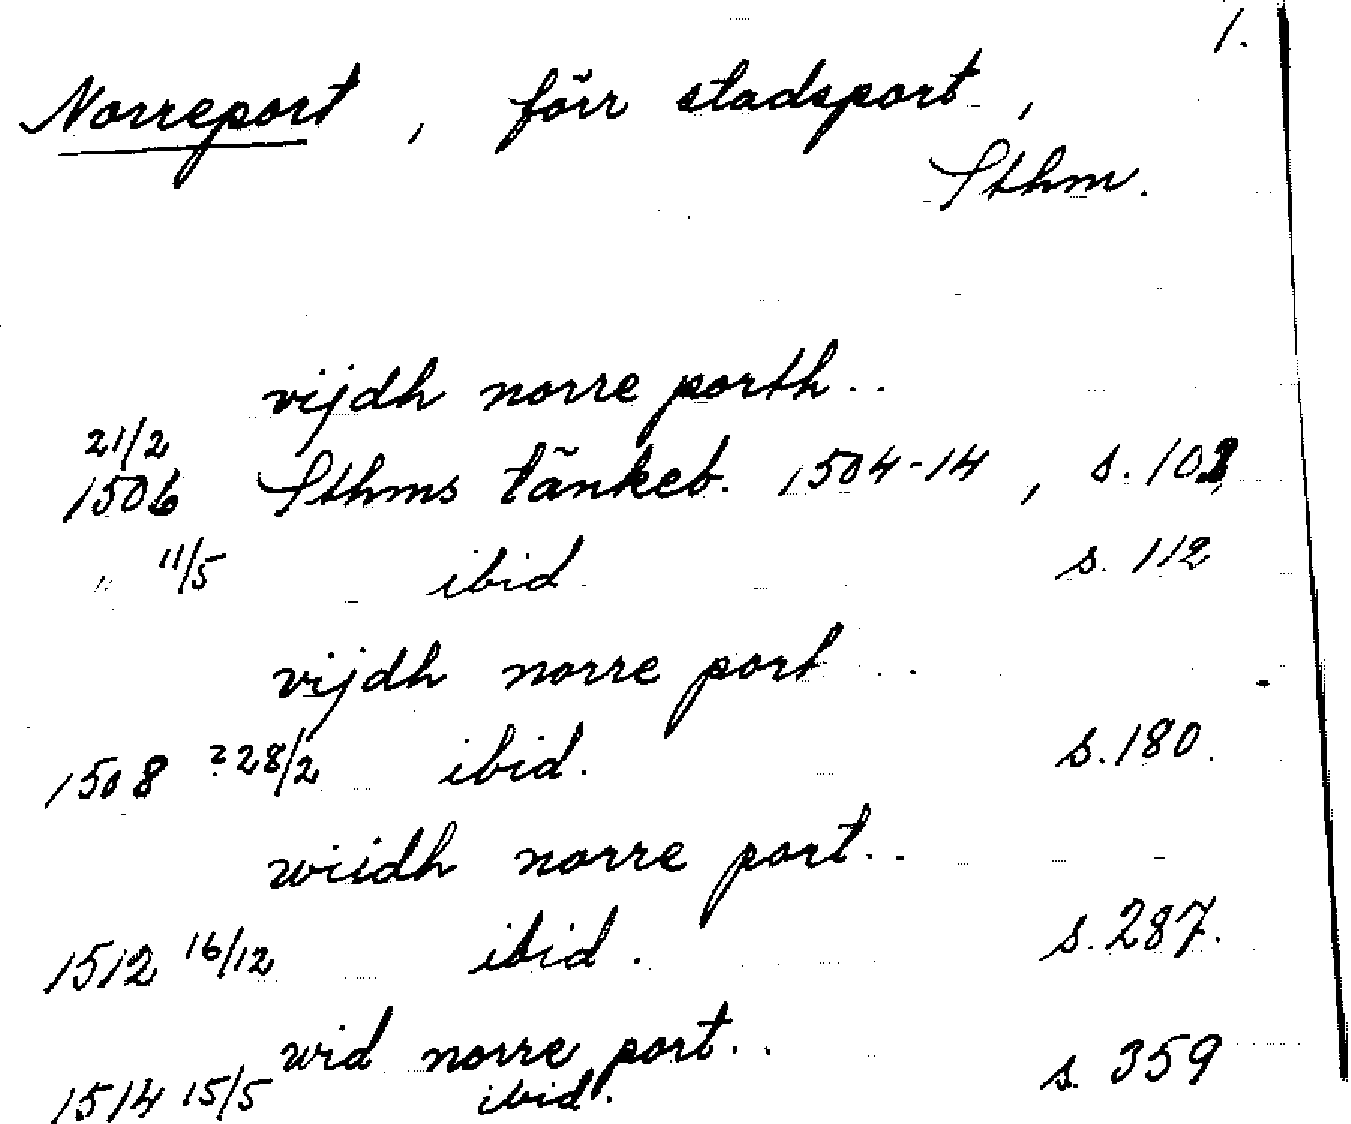 1.
Norreport, förr stadsport,
Sthm.
vijdh norre porth..
21/2
1506 Sthms tänkeb. 1504-14, s.
" 11/5 ibid s. 112
vijdh norre port ..
1508 ? 28/2 ibid. s. 180.
wiidh norre port..
1512 16/12 ibid. s. 287.
wid norre port..
1514 15/5 ibid. s. 359